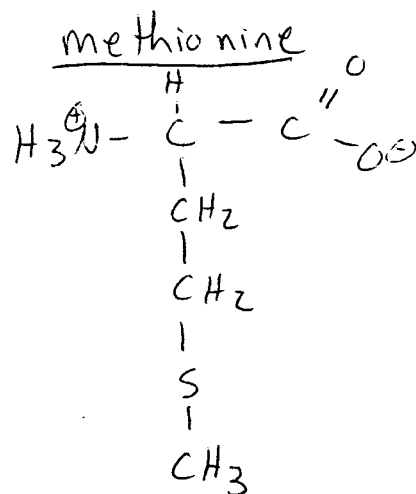 methionine
H O
H₃N⊕ - C - C // - O⊖
CH₂
CH₂
S
CH₃